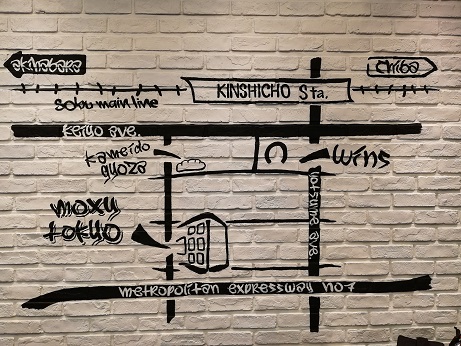 akihabara
chiba
KINSHICHO Sta.
sobu main line
keiyo ave.
kameido
gyoza
wins
yotsume ave.
moxy
tokyo
metropolitan expressway no7